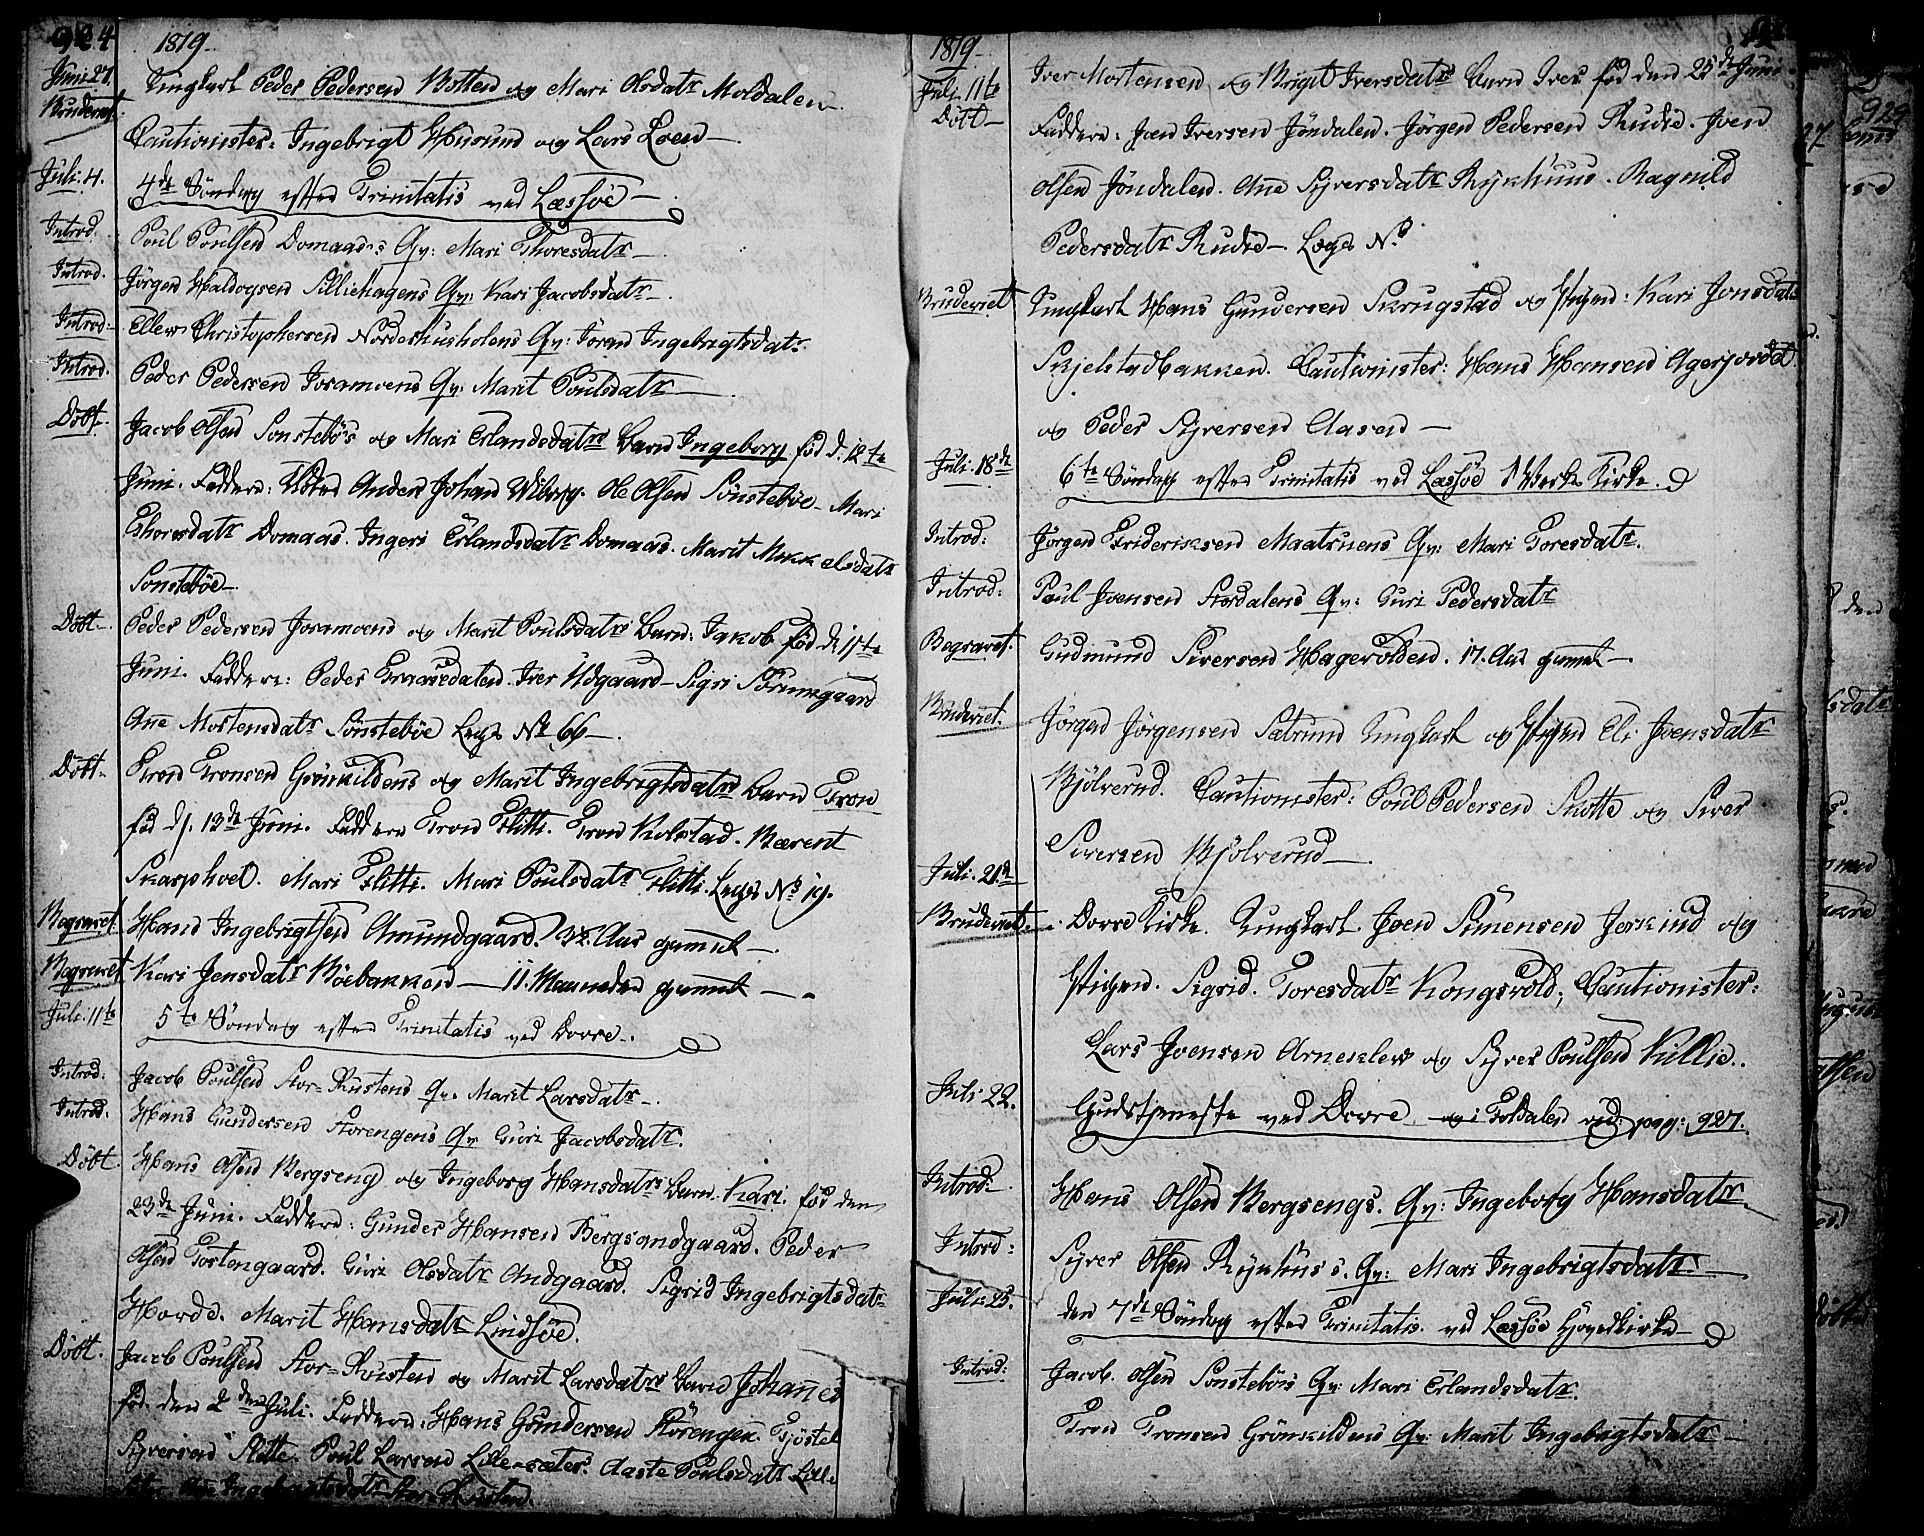 924
1819.
Juni 27. Ungkarl Peder Pedersen Botten og Mari Olsdatr Moldalen
Brudeviet. Cautionister: Ingebrigt Horund og Lars Loen —
Juli. 4. 4de Søndag efter Trinitatis ved Læssøe —
Introd. Poul Poulsen Domaas's Qv: Mari Thoresdatr —
Introd. Jørgen Haldogsen Silliehagens Qv: Kari Jacobsdatr —
Introd: Ellew Christophersen Nordeshusholens Qv: Joran Ingebrigtsdatr.
Introd. Peder Pedersen Joramoens Qv: Marit Poulsdatr —
Döbt. Jacob Olsen Sønstebø's og Mari Erlandsdatrs Barn Ingeborg fød d. 12te
Juni. Faddere: Anders Johan Wiberg. Ole Olsen Sønstebøe. Mari
Thoresdatr Domaas. Ingeri Erlandsdatr Domaas. Marit Mikkelsdatr
Sønstebøe —
Döbt — Peder Pedersen Joramoens og Marit Poulsdatrs Barn: Jakob fød d. 15te
Juni. Faddere: Peder Iver Udgaard — Sigri Sörumgaard
Ane Mortensdatr Sönstebøe Lægs No 66 —
Döbt. Tron Tronsen Grönkildens og Marit Ingebrigtsdatrs Barn Tron
fød d. 13de Juni. Faddere Tron Flitti. Tron Kolstad. Bærent
Skarphoel. Mari Flitti. Mari Poulsdatr Flitti. Lægs No 19.
Begravet. Hans Ingebrigtsen Amundgaard. Aar gammel —
Begravet Kari Jensdatr Böebakken — 11. Maaneder gammel —
Juli. 11te 5te Søndag efter Trinitatis ved Dovre.
Introd: Jacob Poulsen Stor-Rustens Qv. Marit Larsdatr —
Introd: Hans Gundersen Storengens Qv Guri Jacobsdatr.
Döbt. Hans Olsen Bergseng og Ingeborg Hansdatrs Barn. Kari. fød den
23de Juni. Faddere: Gunder Hansen Bergsandgaard. Peder
Olsen Tostengaard. Guri Olsdatr Andgaard. Sigrid Ingebrigtsdatr
Horde. Marit Hansdatr Lindsøe.
Döbt. Jacob Poulsen Stor-Rusten og Marit Larsdatrs Barn Johannes
fød. den 2den Juli. Faddere: Hans Gundersen Störengen. Tjöstel
Syversen Slette. Poul Larsen Lille-sæter. Aaste Poulsdatr Lille
sæter. Ane Ingebrigtsdatr Stor-Rusten.
1819
Juli. 11te Iver Mortensen og Brigit Iversdatrs Barn Iver fød den 25de Juni
Döbt — Faddere: Joen Iversen Jöndalen. Jörgen Pedersen Rudie. Joen
Olsen Jöndalen. Ane Syversdatr Rykhuus. Ragnild
Pedersdatr Rudie — Lægs No
Brudeviet Ungkarl Hans Gundersen Skrugstad og Pigen: Kari Jonsdatr
Skjelstadbakken. Cautionister: Hans Hansen Agerjordet
og Peder Syversen Aasen —
Juli. 18de 6te Søndag efter Trinitatis ved Læssøe Verks Kirke.
Introd: Jørgen Frideriksen Maatruens Qv: Mari Toresdatr.
Introd: Poul Joensen Stordalens Qv: Guri Pedersdatr
Begravet. Gudmund Siversen Hagevolden. 17. Aar gammel —
Brudeviet. Jørgen Jørgensen Sætrund Ungkarl og Pigen Eli Joensdatr
Bjölverud. Cautionister: Poul Pedersen Skotte og Siver
Siversen Bjölverud —
Juli. 21de
Brudeviet. Dovre Kirke. Ungkarl Joen Simensen Jerkind og
Pigen. Sigrid. Toresdatr Kongsvold; Cautionister:
Lars Joensen Arneklev og Syver Poulsen Killie.
Juli 22. Gudstjeneste ved Dovre og i Foldalen vid: pag: 927.
Introd: Hans Olsen Bergsengs. Qv: Ingeborg Hansdatr
Introd: Syver Olsen Rykhus's. Qv: Mari Ingebrigtsdatr —
Juli 25. den 7de Søndag efter Trinitatis. ved Læssøe Hovedkirke —
Introd: Jacob. Olsen Sønstebøes Qv: Mari Erlandsdatr.
Tron Tronsen Grönkildens Qv: Marit Ingebrigtsdatr —
27
929